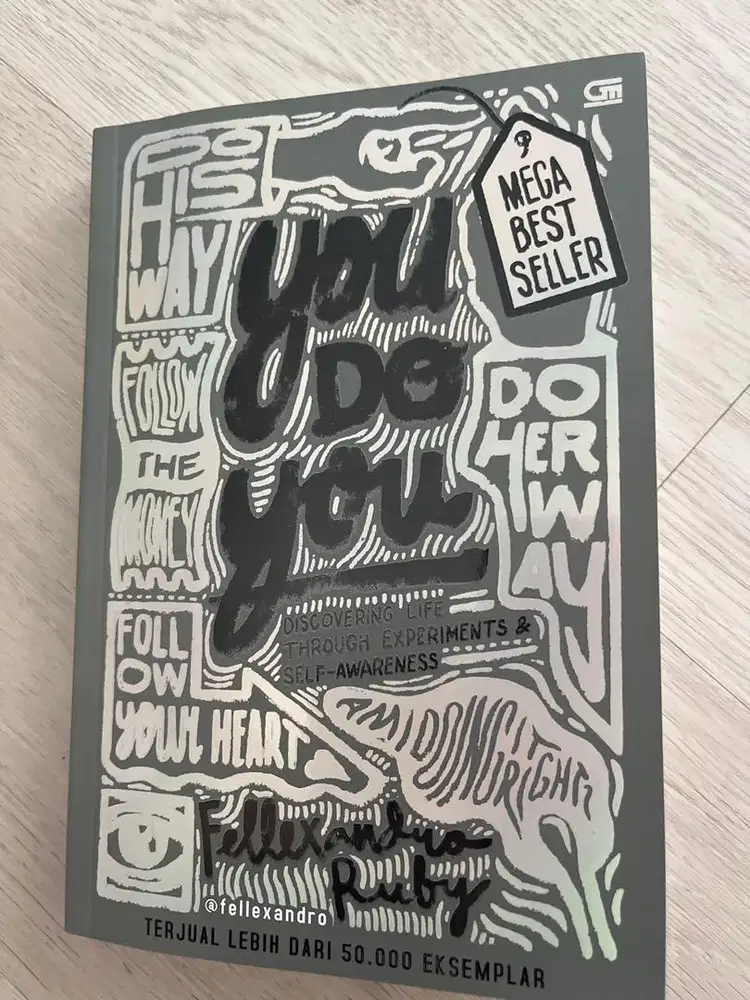 DO
HIS
WAY
MEGA
BEST
SELLER
YOU
DO
YOU
FOLLOW
THE
MONEY
DO
HER
WAY
DISCOVERING LIFE
THROUGH EXPERIMENTS &
SELF-AWARENESS
FOLL
OW
YOUR HEART
AM I DOING IT RIGHT?
Fellexandro
Ruby
@fellexandro
TERJUAL LEBIH DARI 50.000 EKSEMPLAR